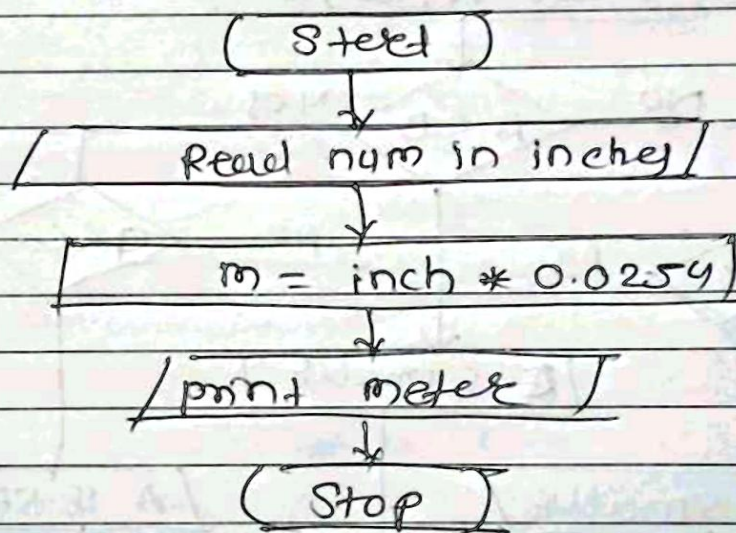 Start
Read num in inches
m = inch * 0.0254
print meter
Stop